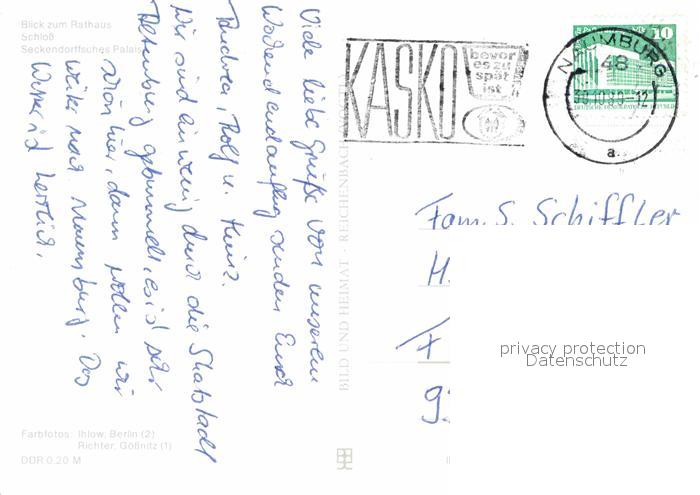 Blick zum Rathaus
Schloß
Seckendorffsches Palais
Viele liebe Grüße von unserem
Wochenendausflug senden Euch
Rolf u. Heinz.
Wir sind ein wenig durch die Skatstadt
Altenburg gebummelt, es ist sehr
schön hier, dann wollen wir
weiter nach Naumburg. Das
Wetter ist herrlich.
Farbfotos: Ihlow, Berlin (2)
Richter, Gößnitz (1)
DDR 0.20 M
BILD UND HEIMAT · REICHENBACH
KASKO
bevor
es zu
spät
ist
NAUMBURG
48
a
10
Fam. S. Schiffler
H.
F
9
privacy protection
Datenschutz